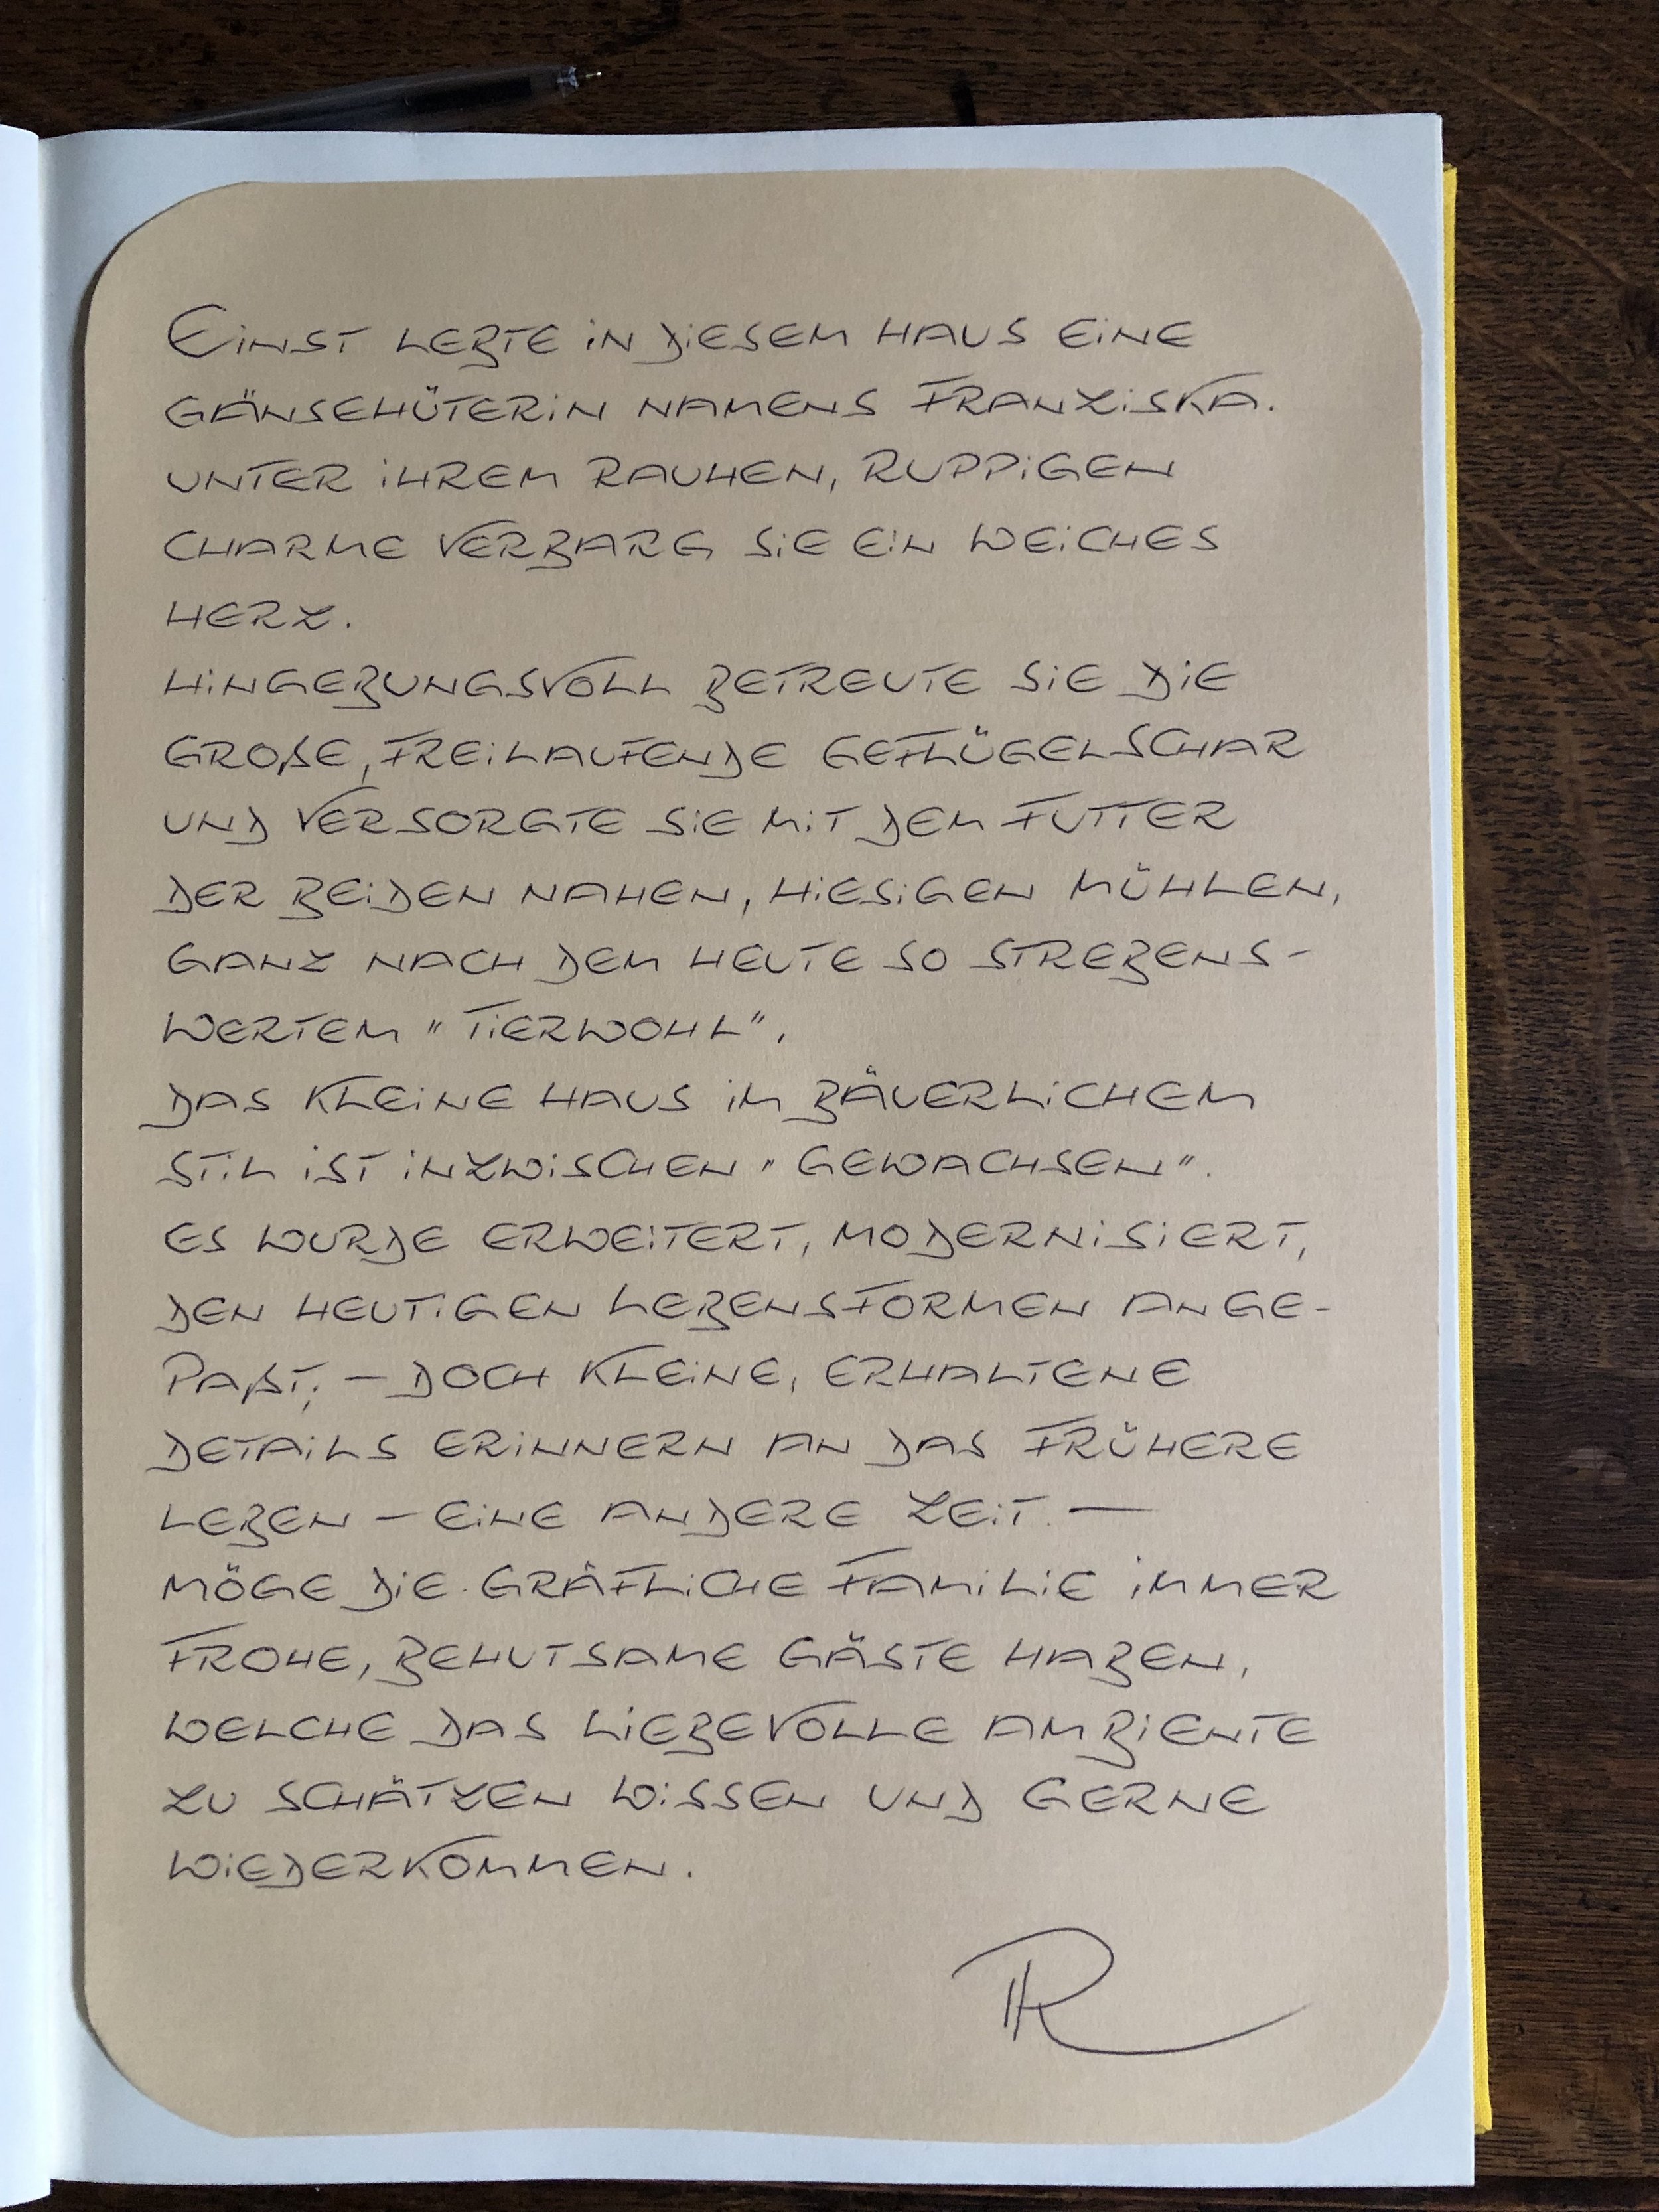 EINST LEBTE IN DIESEM HAUS EINE
GÄNSEHÜTERIN NAMENS FRANZISKA.
UNTER IHREM RAUHEN, RUPPIGEN
CHARME VERBARG SIE EIN WEICHES
HERZ.
HINGEBUNGSVOLL BETREUTE SIE DIE
GROßE, FREILAUFENDE GEFLÜGELSCHAR
UND VERSORGTE SIE MIT DEM FUTTER
DER BEIDEN NAHEN, HIESIGEN MÜHLEN,
GANZ NACH DEM HEUTE SO STREBENS-
WERTEM "TIERWOHL".
DAS KLEINE HAUS IM BÄUERLICHEM
STIL IST INZWISCHEN "GEWACHSEN".
ES WURDE ERWEITERT, MODERNISIERT,
DEN HEUTIGEN LEBENSFORMEN ANGE-
PAßT, – DOCH KLEINE, ERHALTENE
DETAILS ERINNERN AN DAS FRÜHERE
LEBEN – EINE ANDERE ZEIT. —
MÖGE DIE GRÄFLICHE FAMILIE IMMER
FROHE, BEHUTSAME GÄSTE HABEN,
WELCHE DAS LIEBEVOLLE AMBIENTE
ZU SCHÄTZEN WISSEN UND GERNE
WIEDERKOMMEN.